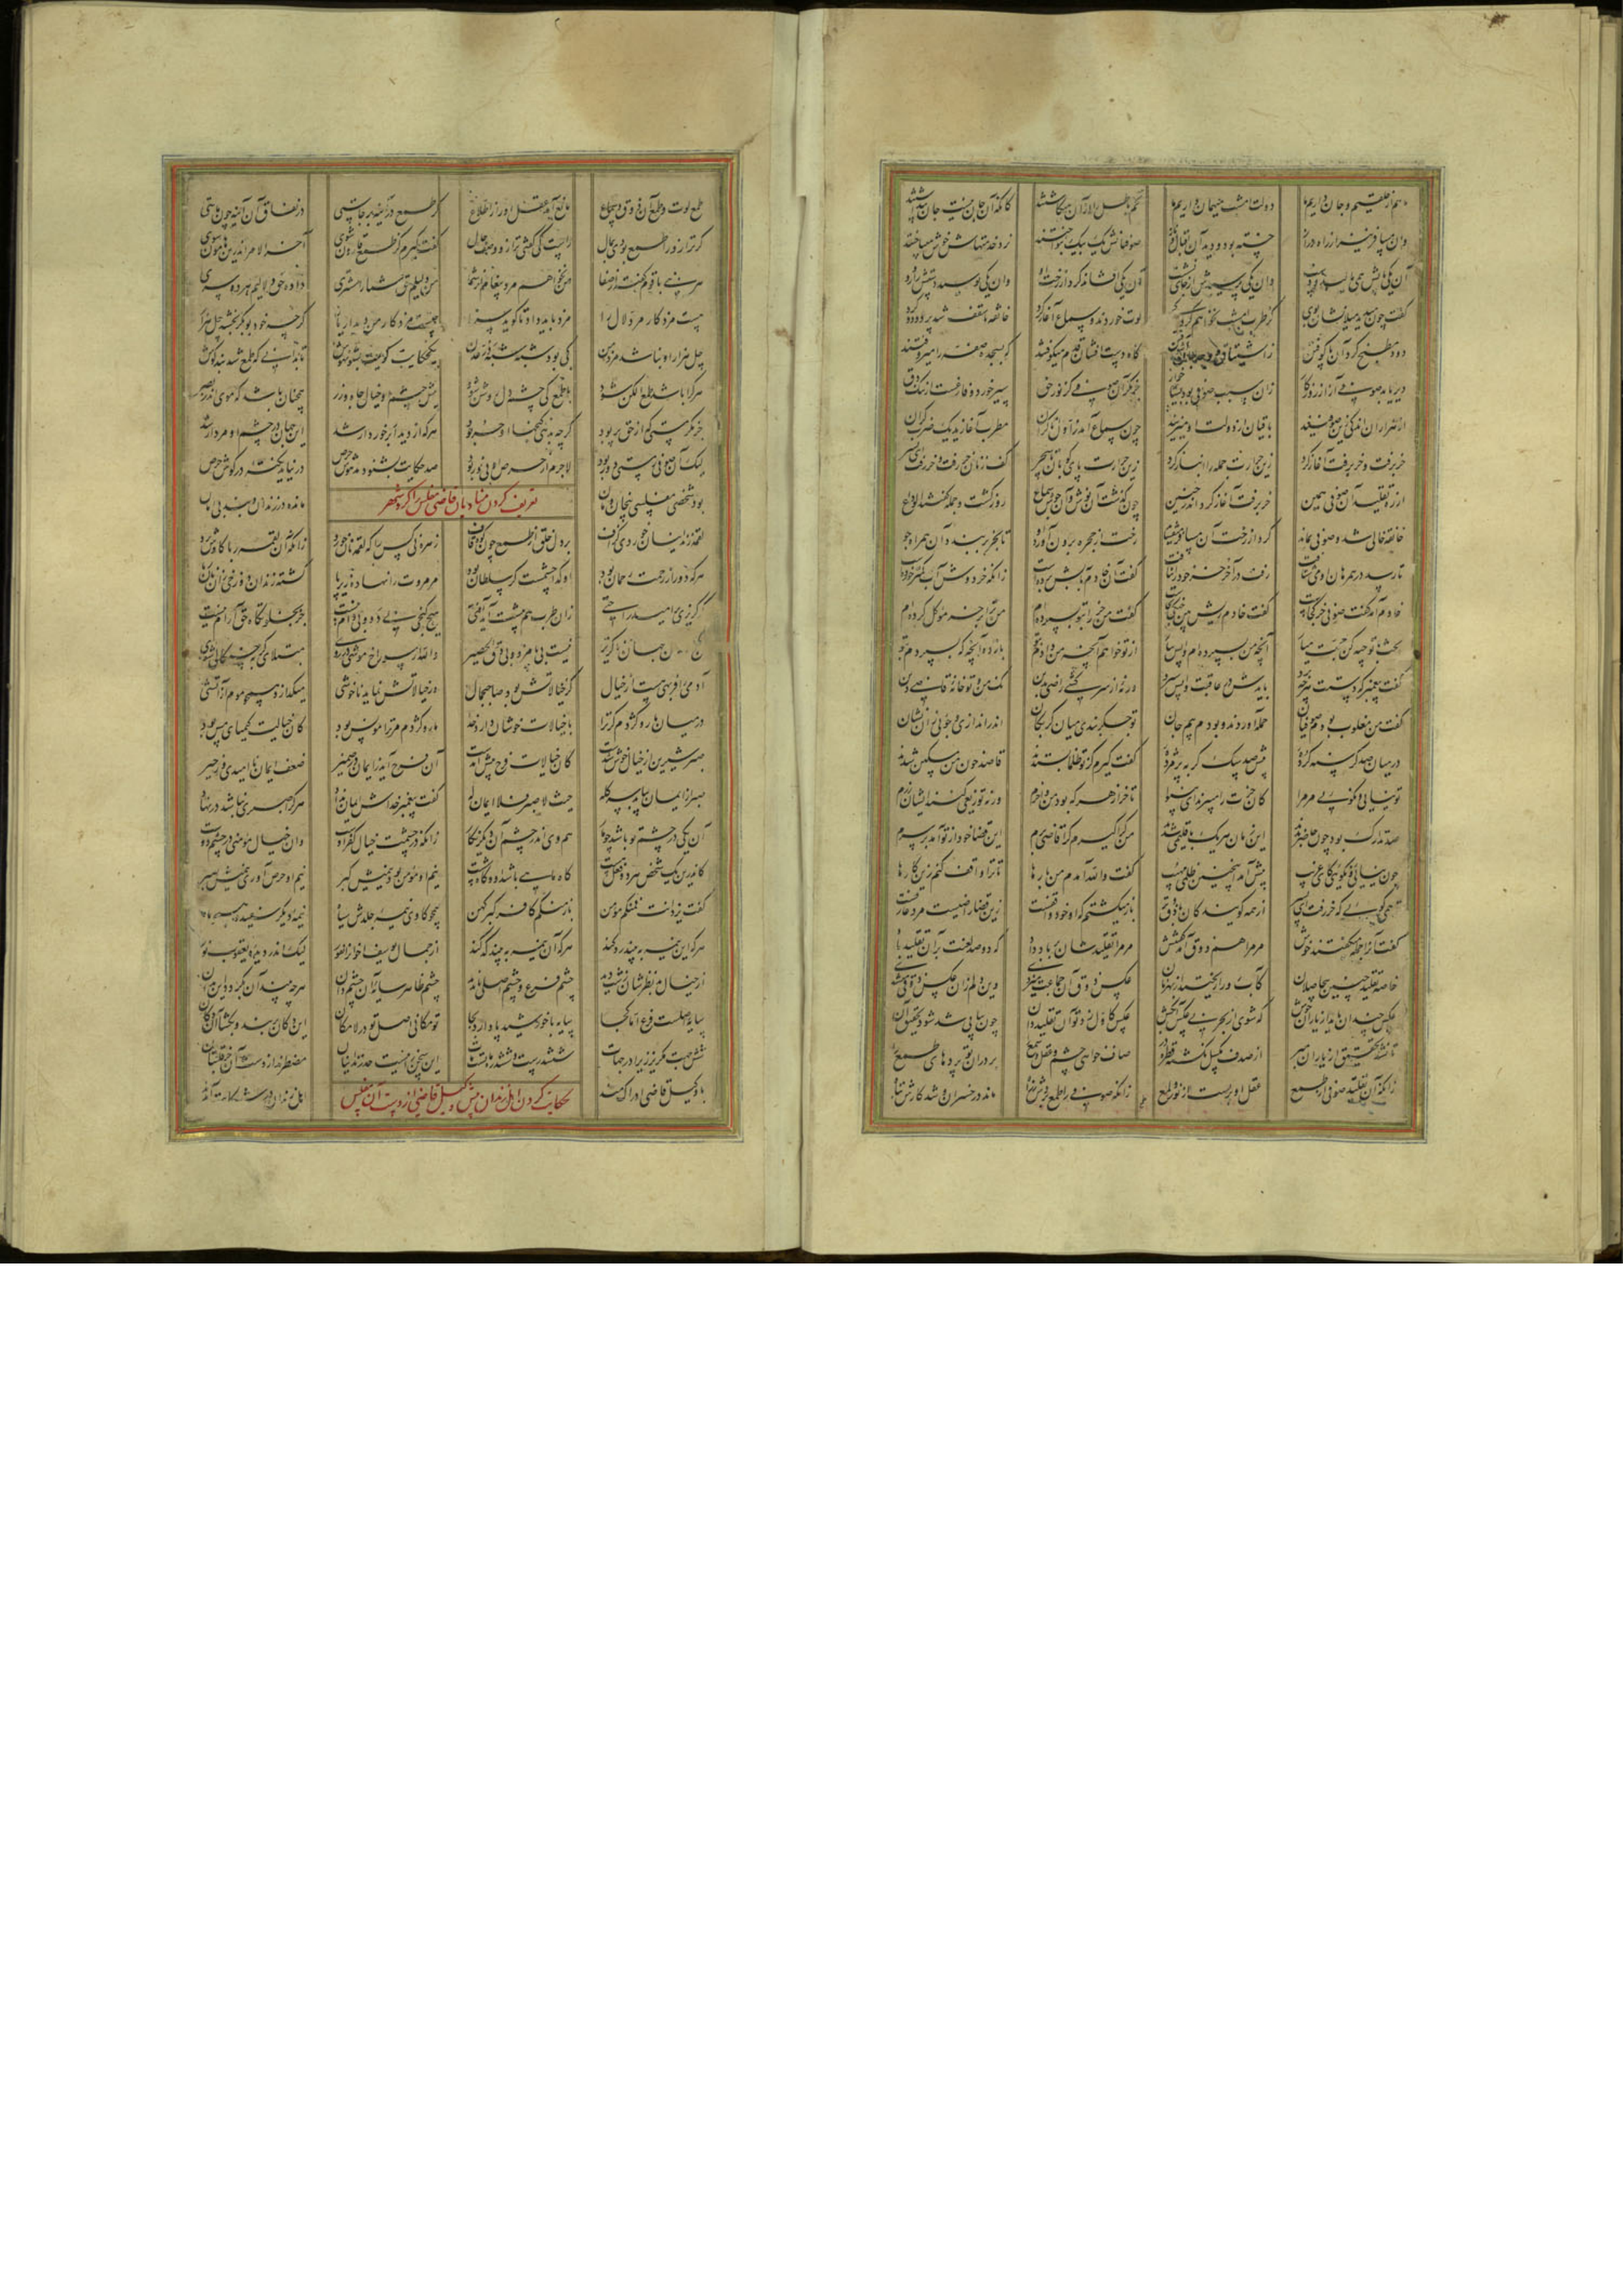 ما هم از خلقیم و جان داریم ما دولت امشب میهمان داریم ما تخم باطل را از آن میکاشتند کانکه آن جان نیست جان پنداشتند
وان مسافر نیز از راه دراز خسته بود و دید آن اقبال و ناز صوفیانش یک بیک بنواختند نرد خدمتهاش خوش میباختند
آن یکی پایش همی مالید و دست وان یکی پرسیدش از جای نشست وان یکی افشاند گرد از رخت او وان یکی بوسید دستش را و رو
گفت چون میدید میلانشان بوی گر طرب امشب نخواهم کرد کی لوت خوردند و سماع آغاز کرد خانقه تا سقف شد پر دود و گرد
دود مطبخ گرد آن پا کوفتن ز اشتیاق و وجد جان آشوفتن گاه دست افشان قدم میکوفتند گه بسجده صفه را میروفتند
دیر یابد صوفی آز از روزگار زان سبب صوفی بود بسیار خوار جز مگر آن صوفیی کز نور حق سیر خورد و فارغست از ننگ دق
از هزاران اندکی زین صوفیند باقیان در دولت او میزیند چون سماع آمد ز اول تا کران مطرب آغازید یک ضرب گران
خر برفت و خر برفت آغاز کرد زین حرارت جمله را انباز کرد زین حرارت پای کوبان تا سحر کف زنان خر رفت و خر رفت ای پسر
از ره تقلید آن صوفی همین خر برفت آغاز کرد اندر حنین چون گذشت آن نوش و جوش و آن سماع روز گشت و جمله گفتند الوداع
خانقه خالی شد و صوفی بماند گرد از رخت آن مسافر میفشاند رخت از حجره برون آورد او تا بخر بر بندد آن همراه جو
تا رسد در همرهان او میشتافت رفت در آخر خر خود را نیافت گفت آن خادم بآبش برده است زانکه خر دوش آب کمتر خورده است
خادم آمد گفت صوفی خر کجاست گفت خادم ریش بین جنگی بخاست گفت من خر را بتو بسپرده ام من ترا بر خر موکل کرده ام
بحث با توجیه کن حجت میار آنچه من بسپردم وا پس سپار از تو خواهم آنچه من دادم بتو باز ده آنچه که بسپردم بتو
گفت پیغمبر که دستت هر چه برد بایدش در عاقبت وا پس سپرد ور نه از سرکشی راضی بدین نک من و تو خانه قاضی دین
گفت من مغلوب بودم صوفیان حمله آوردند و بودم بیم جان تو جگر بندی میان گربگان اندر اندازی و جویی زان نشان
در میان صد گرسنه گرده پیش صد سگ گربه پژمرده گفت گیرم کز تو ظلما بستدند قاصد خون من مسکین شدند
تو نیایی و نگویی مر مرا کان خرت را میبرند ای بینوا تا خر از هر که بود من واخرم ورنه توزیعی کنند ایشان زرم
صد تدارک بود چون حاضر بدند این زمان هر یک باقلیمی شدند من کرا گیرم کرا قاضی برم این قضا خود از تو آمد بر سرم
چون نیایی و نگویی ای غریب پیش آمد اینچنین ظلمی مهیب گفت والله آمدم من بارها تا ترا واقف کنم زین کارها
تو همی گویی که خر رفت ای پسر از همه گویندگان با ذوق تر باز میگشتم که او خود واقفست زین قضا راضیست مرد عارفست
گفت آنرا جمله میگفتند خوش مر مرا هم ذوق آمد گفتنش مر مرا تقلیدشان بر باد داد که دو صد لعنت بر آن تقلید باد
خاصه تقلید چنین بیحاصلان کاب رو را ریختند از بهر نان عکس ذوق آن جماعت میزدی وین دلم زان عکس ذوقی میشدی
عکس چندان باید از یاران خوش که شوی از بحر بی عکس آبکش عکس کاول زد تو آن تقلید دان چون پیاپی شد شود تحقیق آن
تا نشد تحقیق از یاران مبر از صدف مگسل نگشته قطره در صاف خواهی چشم و عقل و سمع بر دران تو پردهای طمع
زانکه آن تقلید صوفی از طمع عقل او بر بست از نور لمع زانکه صوفی را طمع بردش ز راه ماند در خسران و شد کارش تباه
طمع لوت و طمع آن ذوق و سماع مانع آمد عقل او را ز اطلاع گر طمع در آینه بر خاستی در نفاق آن آینه چون ماستی
گر ترازو را طمع بودی بمال راست کی گفتی ترازو وصف حال گفت گیرم کز طمع قارون شوی آخر الامر اندرین هامون شوی
هر نبیی با قوم گفت از صفا من نخواهم مزد پیغام از شما من دلیلم حق شما را مشتری داد حق دلالیم هر دو سری
چیست مزد کار مر دلال را مزد باید داد تا گوید سزا چیست مزد کار من دیدار یار گرچه خود بوبکر بخشد چل هزار
چل هزار او نباشد مزد من کی بود شبه شبه در عدن یک حکایت گویمت بشنو بهوش تا بدانی که طمع شد بند گوش
هر کرا باشد طمع الکن شود با طمع کی چشم دل روشن شود پیش چشم او خیال جاه و زر همچنان باشد که موی اندر بصر
جز مگر مستی که از حق پر بود گرچه بدهی گنجها او حر بود هر که از دیدار برخوردار شد این جهان در چشم او مردار شد
لیک آن صوفی ز مستی دور بود لاجرم از حرص او بی نور بود صد حکایت بشنود مدهوش حرص در نیاید نکته در گوش حرص
تعریف کردن منادیان قاضی مفلس را گرد شهر
بود شخصی مفلسی بی خان و مان مانده در زندان و بند بی امان
لقمه زندانیان خوردی گزاف بر دل خلق از طمع چون کوه قاف زهره نی کس را که لقمه نان خورد زانکه آن لقمه ربا کاوش برد
هر که دور از رحمت رحمان بود او گدا چشمست گر سلطان بود مر مروت را نهاده زیر پا گشته زندان دوزخی زان نان ربا
گر گریزی بر امید راحتی زان طرف هم پیشت آید آفتی هیچ کنجی بی دد و بی دام نیست جز بخلوتگاه حق آرام نیست
کنج زندان جهان ناگزیر نیست بی پا مزد و بی دق الحصیر والله ار سوراخ موشی در روی مبتلای گربه چنگالی شوی
آدمی را فربهی هست از خیال گر خیالاتش بود صاحب جمال ور خیالاتش نماید ناخوشی میگدازد همچو موم از آتشی
در میان مار و کژدم گر ترا با خیالات خوشان دارد خدا مار و کژدم مر ترا مونس بود کان خیالت کیمیای مس بود
صبر شیرین از خیال خوش شدست کان خیالات فرح پیش آمدست آن فرح آید ز ایمان در ضمیر ضعف ایمان نا امیدی و زحیر
صبر از ایمان بیابد سر کله حیث لا صبر فلا ایمان له گفت پیغمبر خداش ایمان نداد هر کرا صبری نباشد در نهاد
آن یکی در چشم تو باشد چو مار هم وی اندر چشم آن دیگر نگار زانکه در چشمت خیال کفر اوست وان خیال مؤمنی در چشم دوست
کاندرین یک شخص هر دو فعل هست گاه ماهی باشد و گاه شست نیم او مؤمن بود نیمیش گبر نیم او حرص آوری نیمیش صبر
گفت یزدانت فمنکم مؤمن باز منکم کافر گبر کهن همچو گاوی نیمه جلدش سیاه نیمه دیگر سفید همچو ماه
هر که این نیمه ببیند رد کند هر که آن نیمه ببیند کد کند از جمال یوسف اخوان نفور لیک اندر دیده یعقوب نور
از خیال بد نظرشان زشت دید چشم فرع و چشم اصلی ناپدید چشم ظاهر سایه آن چشم دان هر چه بیند آن بگردد این بدان
سایه اصلست فرع اما کجا سایه با خورشید پا دارد بجا تو مکانی اصل تو در لامکان این دکان بر بند و بگشا آن دکان
شش جهت مگریز زیرا در جهات ششدرست و ششدره ماتست مات این سخن را نیست حد زندانیان مضطرند از دست آن خر قلتبان
شکایت کردن اهل زندان پیش وکیل قاضی از دست آن مفلس
با وکیل قاضی ادراکمند اهل زندان در شکایت آمدند